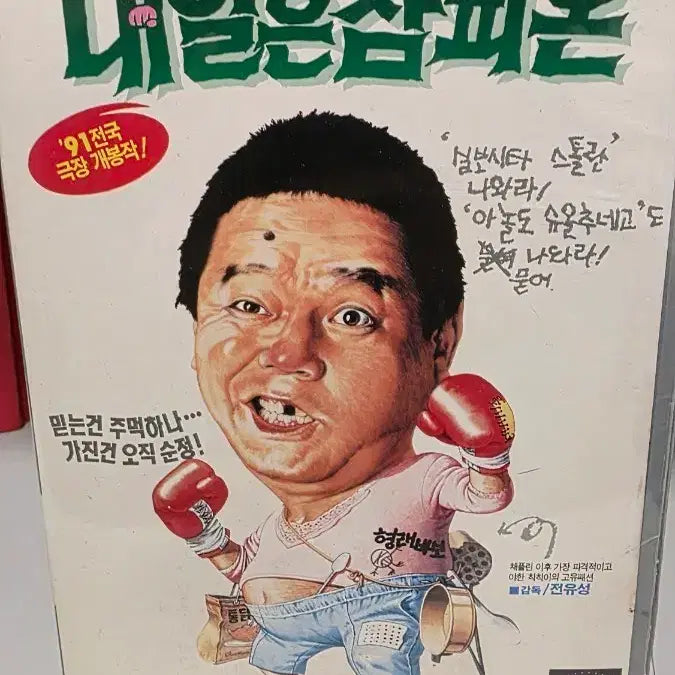 내일은참피온
'91전국
극장 개봉작!
'심뽀시타 스톨란'
나와라!
'아놀도 슈올추네고'도
나와라!
묻어.
믿는건 주먹하나…
가진건 오직 순정!
형래빠보
채플린 이후 가장 파격적이고
야한 칙칙이의 고유패션
■감독/전유성